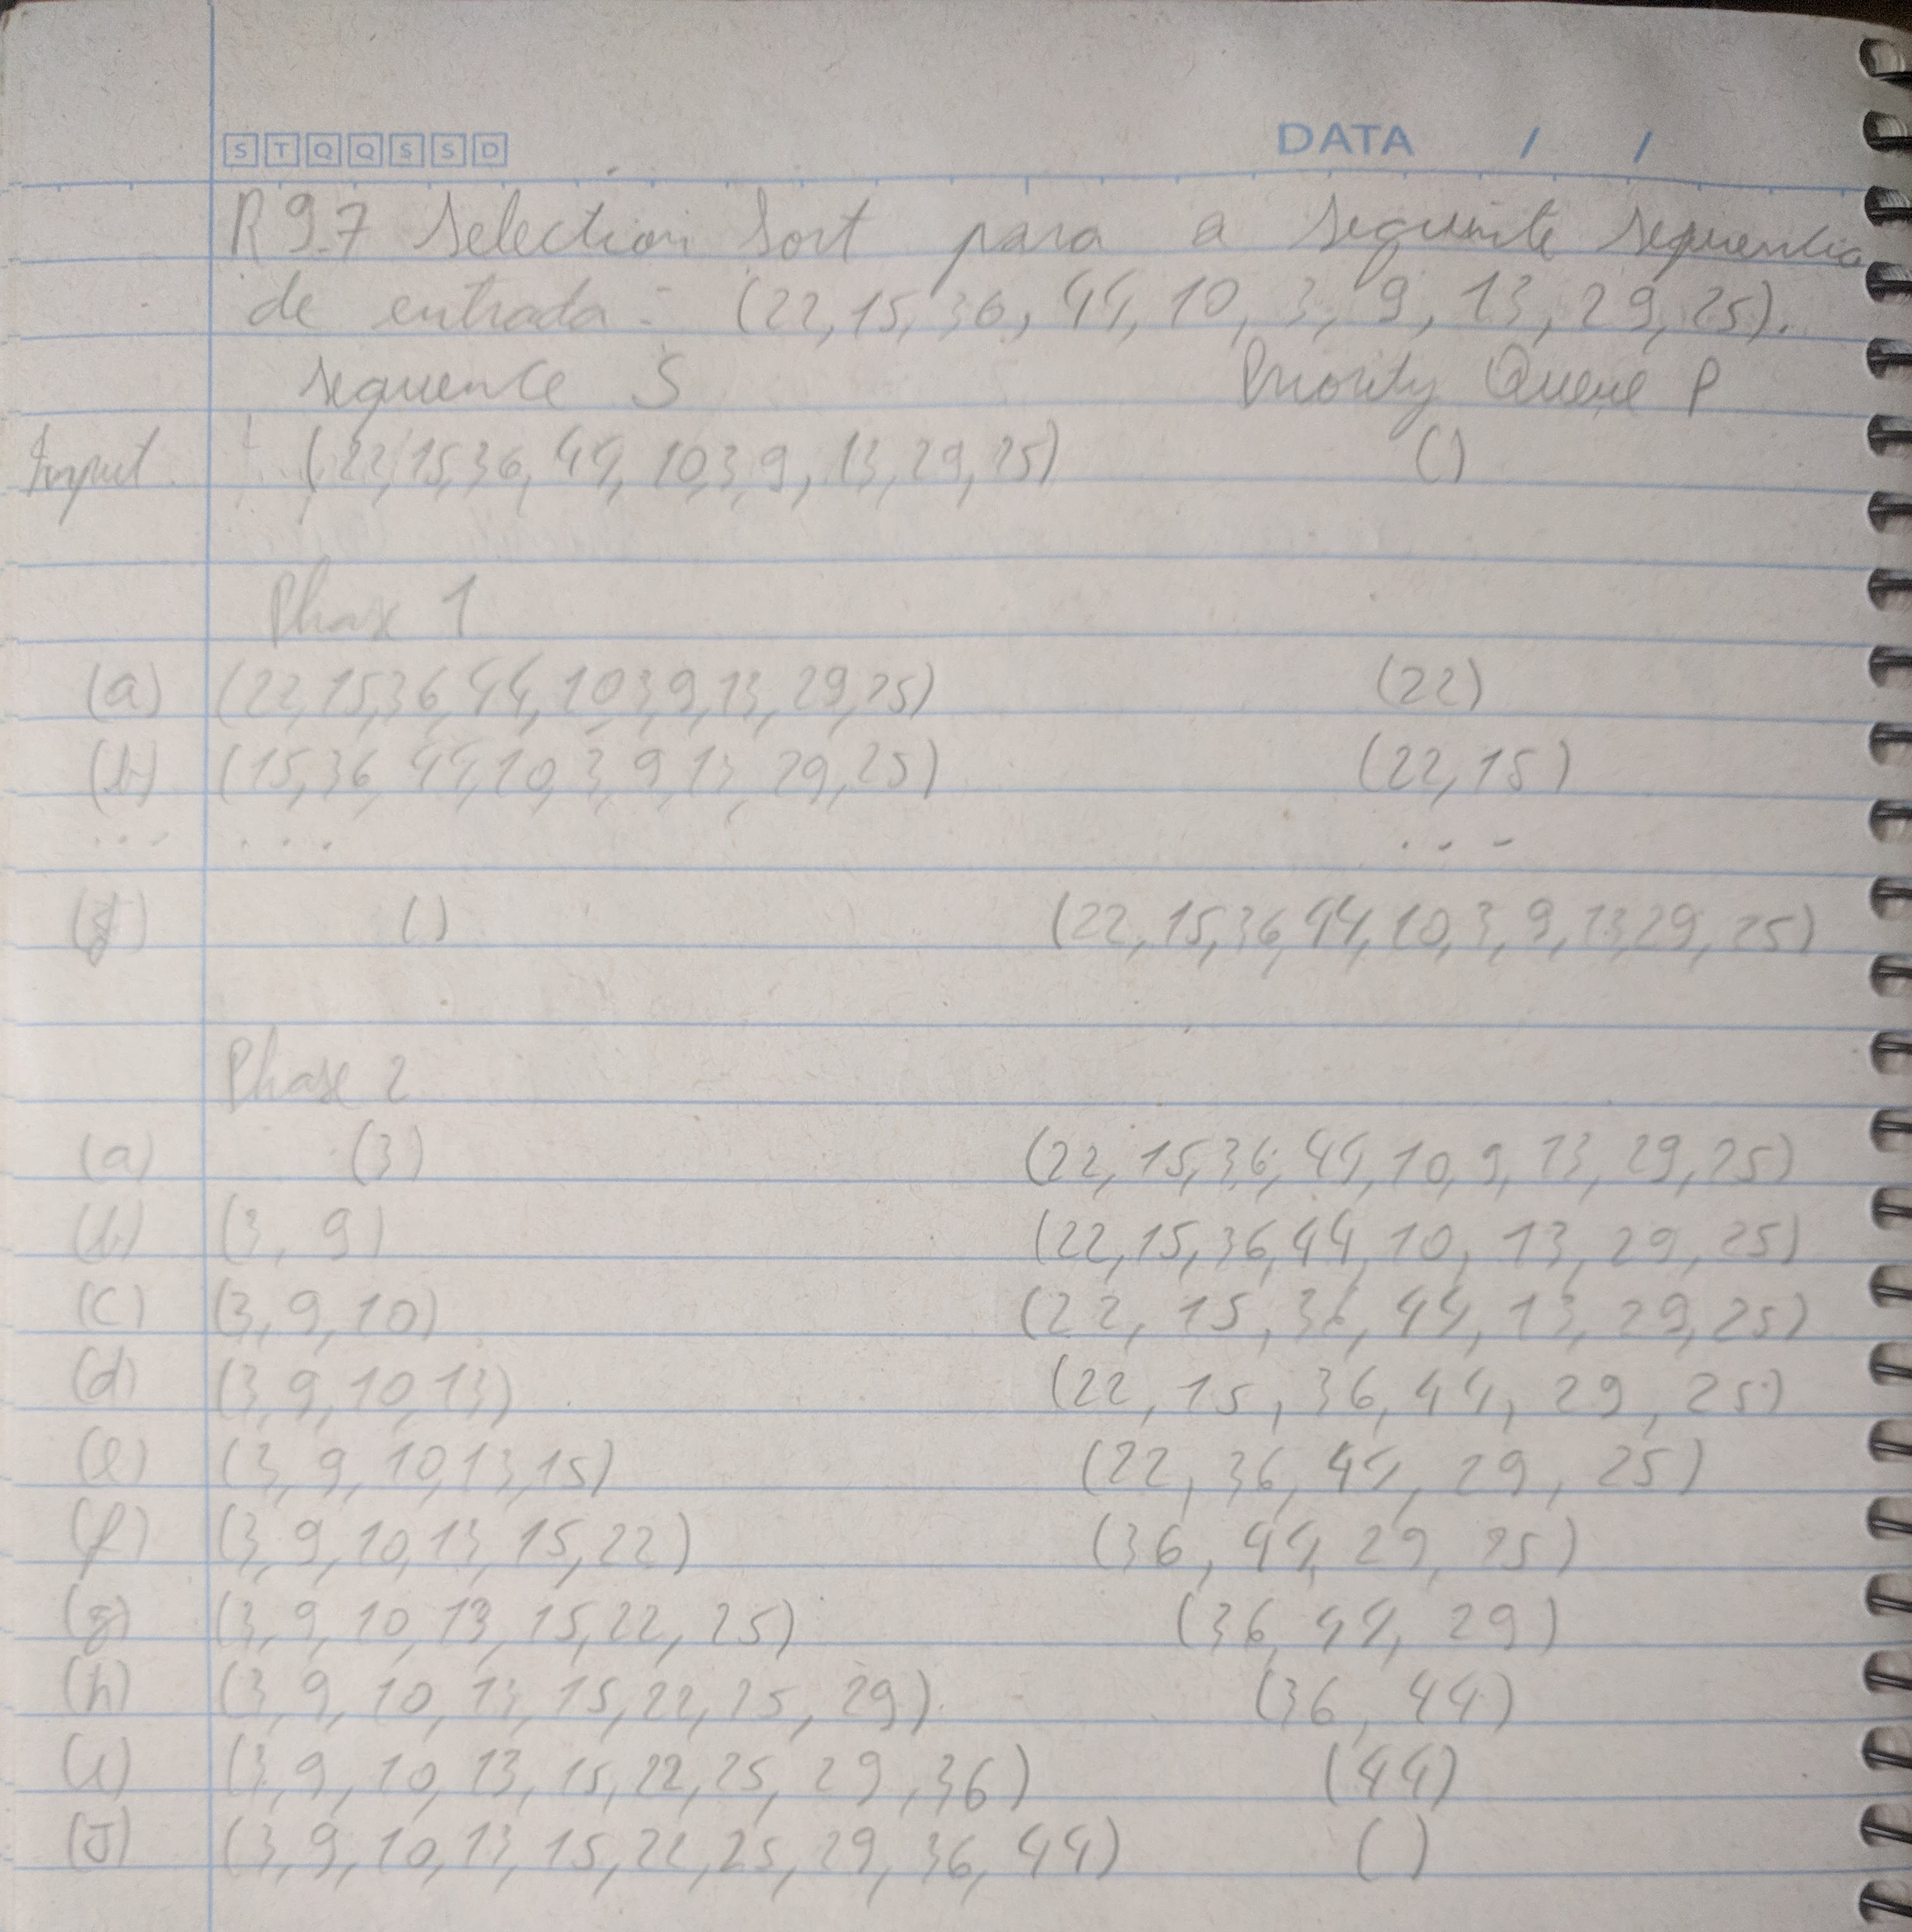 S T Q Q S S D DATA / /
R 9.7 Selection Sort para a seguinte sequencia
de entrada: (22, 15, 36, 44, 10, 3, 9, 13, 29, 25).
sequence S Priority Queue P
Input (22, 15, 36, 44, 10, 3, 9, 13, 29, 25) ()
Phase 1
(a) (22, 15, 36, 44, 10, 3, 9, 13, 29, 25) (22)
(b) (15, 36, 44, 10, 3, 9, 13, 29, 25) (22, 15)
... ... ...
() (22, 15, 36, 44, 10, 3, 9, 13, 29, 25)
Phase 2
(a) (3) (22, 15, 36, 44, 10, 9, 13, 29, 25)
(b) (3, 9) (22, 15, 36, 44, 10, 13, 29, 25)
(c) (3, 9, 10) (22, 15, 36, 44, 13, 29, 25)
(d) (3, 9, 10, 13) (22, 15, 36, 44, 29, 25)
(e) (3, 9, 10, 13, 15) (22, 36, 44, 29, 25)
(f) (3, 9, 10, 13, 15, 22) (36, 44, 29, 25)
(g) (3, 9, 10, 13, 15, 22, 25) (36, 44, 29)
(h) (3, 9, 10, 13, 15, 22, 25, 29) (36, 44)
(i) (3, 9, 10, 13, 15, 22, 25, 29, 36) (44)
(J) (3, 9, 10, 13, 15, 22, 25, 29, 36, 44) ()